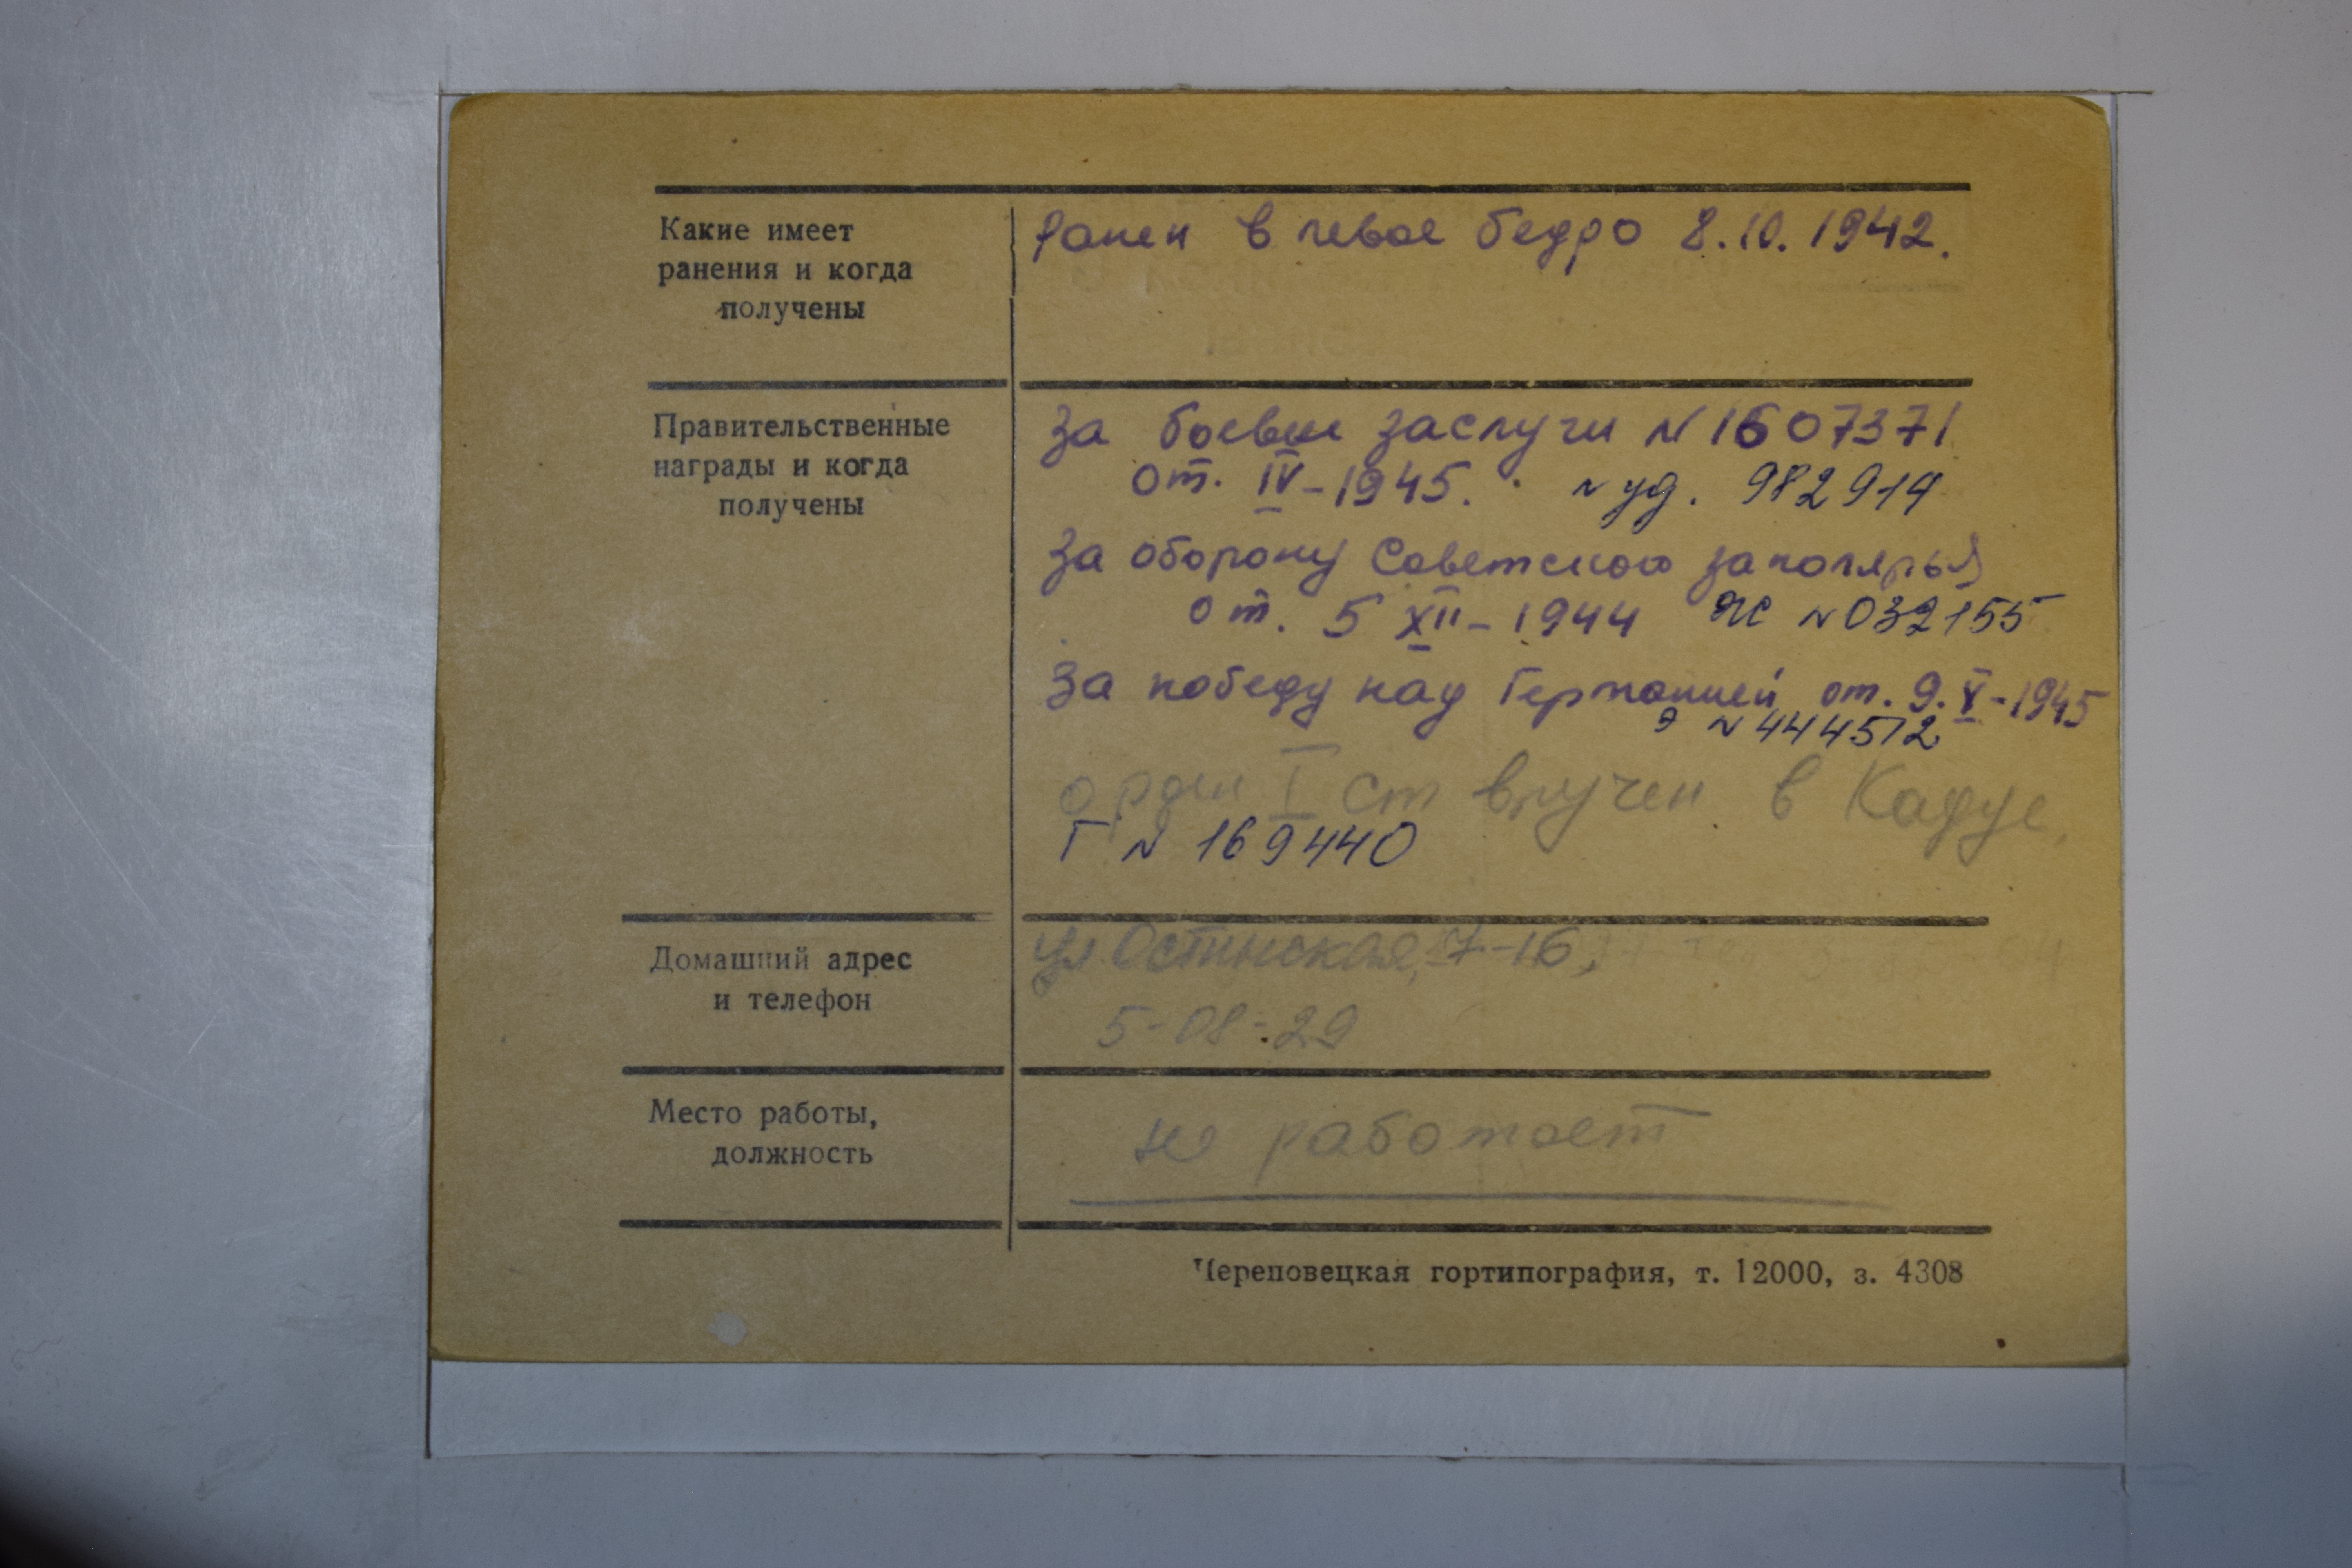 Какие имеет
ранения и когда
получены
Ранен в левое бедро 8.10.1942.
Правительственные
награды и когда
получены
За боевые заслуги N 1607371
от. IV-1945. N уд. 982914
За оборону Советского заполярья
от. 5 XII-1944 ЯС N 032155
За победу над Германией от. 9.V-1945
Э N 444512
орден I ст вручен в Кадуе,
Г N 169440
Домашний адрес
и телефон
ул. Остинская, 7-16,
5-08-29
Место работы,
должность
не работает
Череповецкая гортипография, т. 12000, з. 4308